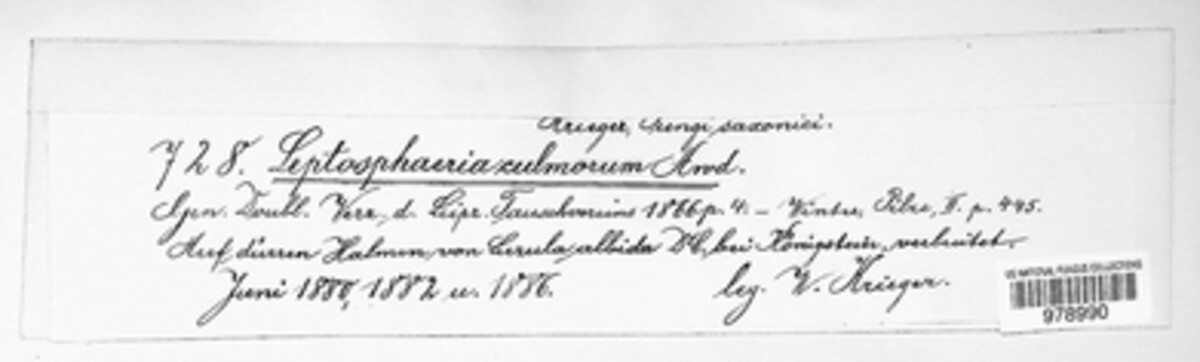 Krieger, Fungi saxonici.
728. Leptosphaeria culmorum Awd.
Syn. Doubl. Verz. d. Lipz. Tauschvereins 1866 p. 4. – Winter, Pilze, II. p. 445.
Auf dürren Halmen von Luzula albida DC, bei Königstein, verbreitet.
Juni 1880, 1882 u. 1886. leg. W. Krieger.
US NATIONAL FUNGUS COLLECTIONS
978990